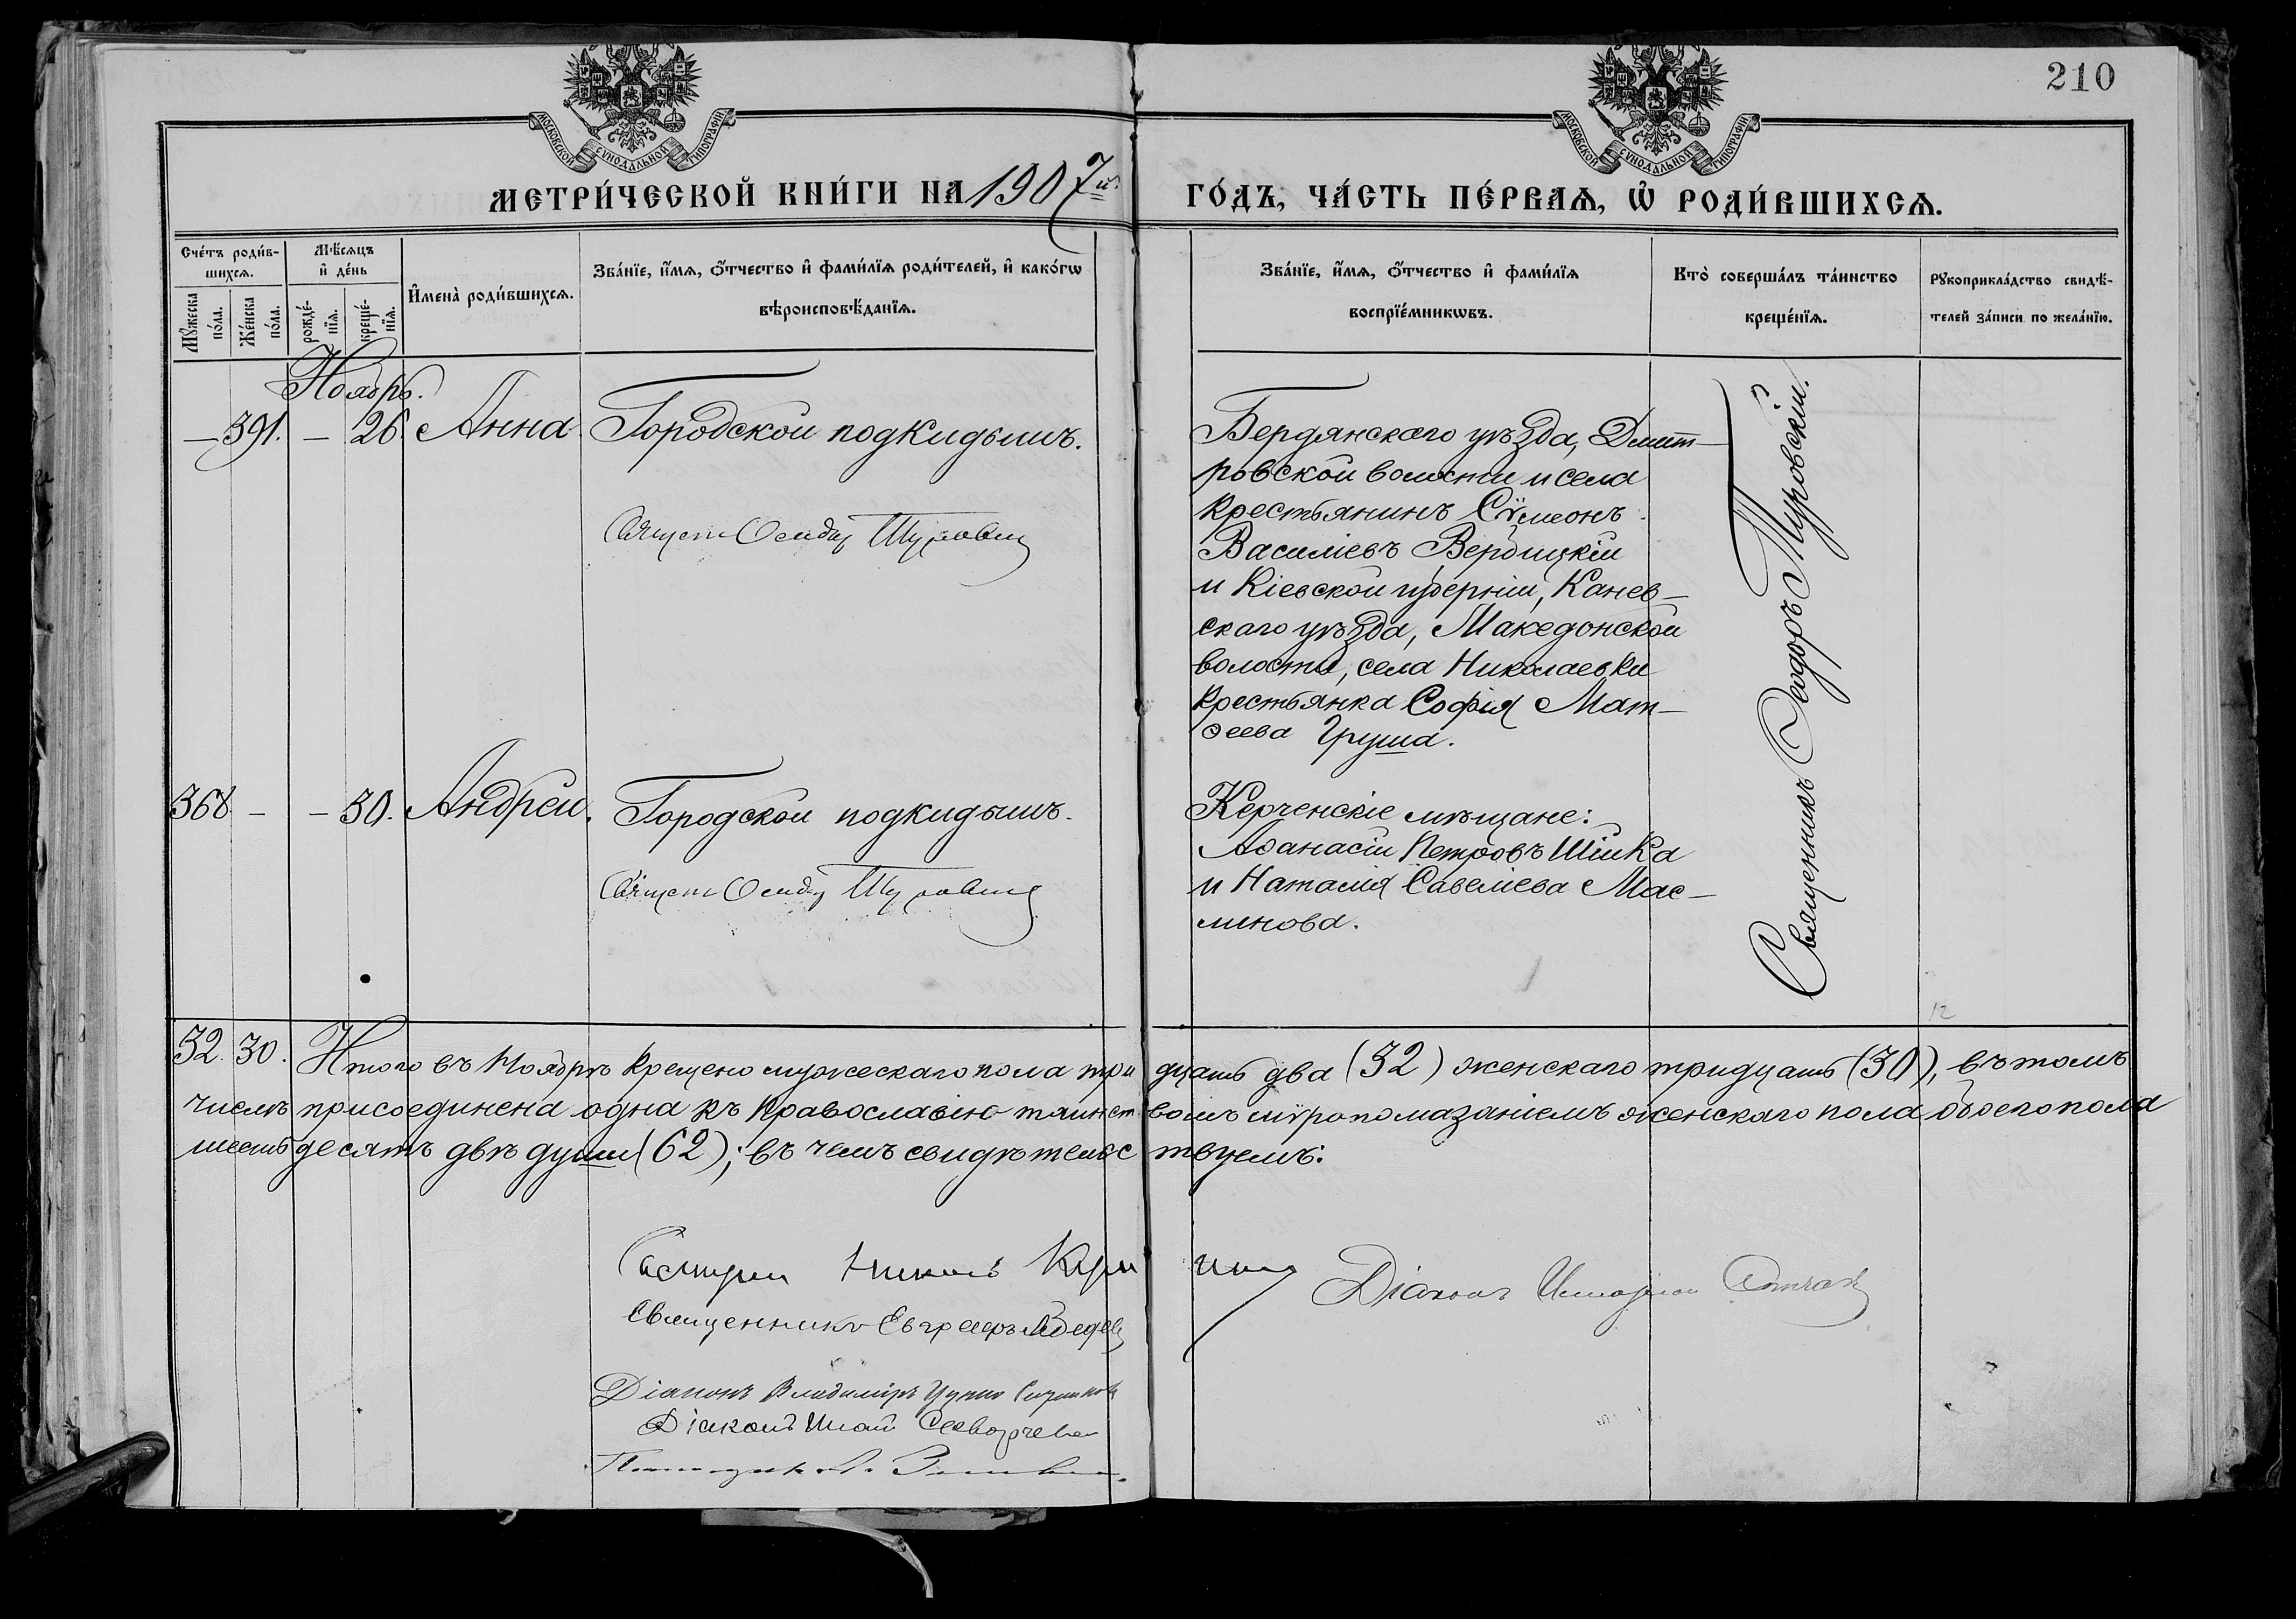 210
МОСКОВСКОЙ СѴНОДАЛЬНОЙ ТИПОГРАФІИ
МОСКОВСКОЙ СѴНОДАЛЬНОЙ ТИПОГРАФІИ
МЕТРИ́ЧЕСКОЙ КНИ́ГИ НА 1907й. ГО́ДЪ, ЧА́СТЬ ПЕ́РВАѦ, Ѡ҆ РОДИ́ВШИХСѦ.
Сче́тъ роди́в-
шихсѧ.
Мꙋ́жеска по́ла.
Же́нска по́ла.
Мѣ́сѧцъ
и҆ де́нь
рожде́-
нїѧ.
креще́-
нїѧ.
И҆мена̀ роди́вшихсѧ.
Зва́нїе, и҆́мѧ, ѻ҆́тчество и҆ фами́лїѧ роди́телей, и҆ како́гѡ
вѣроисповѣ́данїѧ.
Зва́нїе, и҆́мѧ, ѻ҆́тчество и҆ фами́лїѧ
воспрїе́мникѡвъ.
Кто̀ соверша́лъ та́инство
креще́нїѧ.
Рꙋкоприкла́дство свидѣ́-
телей за́писи по жела́нїю.
Ноябрь.
— 391. — 26. Анна Городской подкидышъ.
Бердянскаго уѣзда, Дмит-
ровской волости и села
крестьянинъ Сѵмеонъ
Василіевъ Вербицкій
и Кіевской губерніи, Канев-
скаго уѣзда, Македонской
волости, села Николаевки
крестьянка Софія Мат-
ѳеева Груша.
Священникъ Ѳеодоръ Туровскій.
368 — — 30. Андрей. Городской подкидышъ.
Керченскіе мѣщане:
Аѳанасій Петровъ Шійка
и Наталія Савеліева Мас-
линова.
32. 30. Итого въ Ноябрѣ крещено мужескаго пола тридцать два (32) женскаго тридцать (30), въ томъ
числѣ присоединена одна къ православію таинствомъ мѵропомазаніемъ женскаго пола обоего пола
шестьдесятъ двѣ души (62); въ чемъ свидѣтельствуемъ:
Священникъ
Діаконъ
Діаконъ Владиміръ
Діаконъ